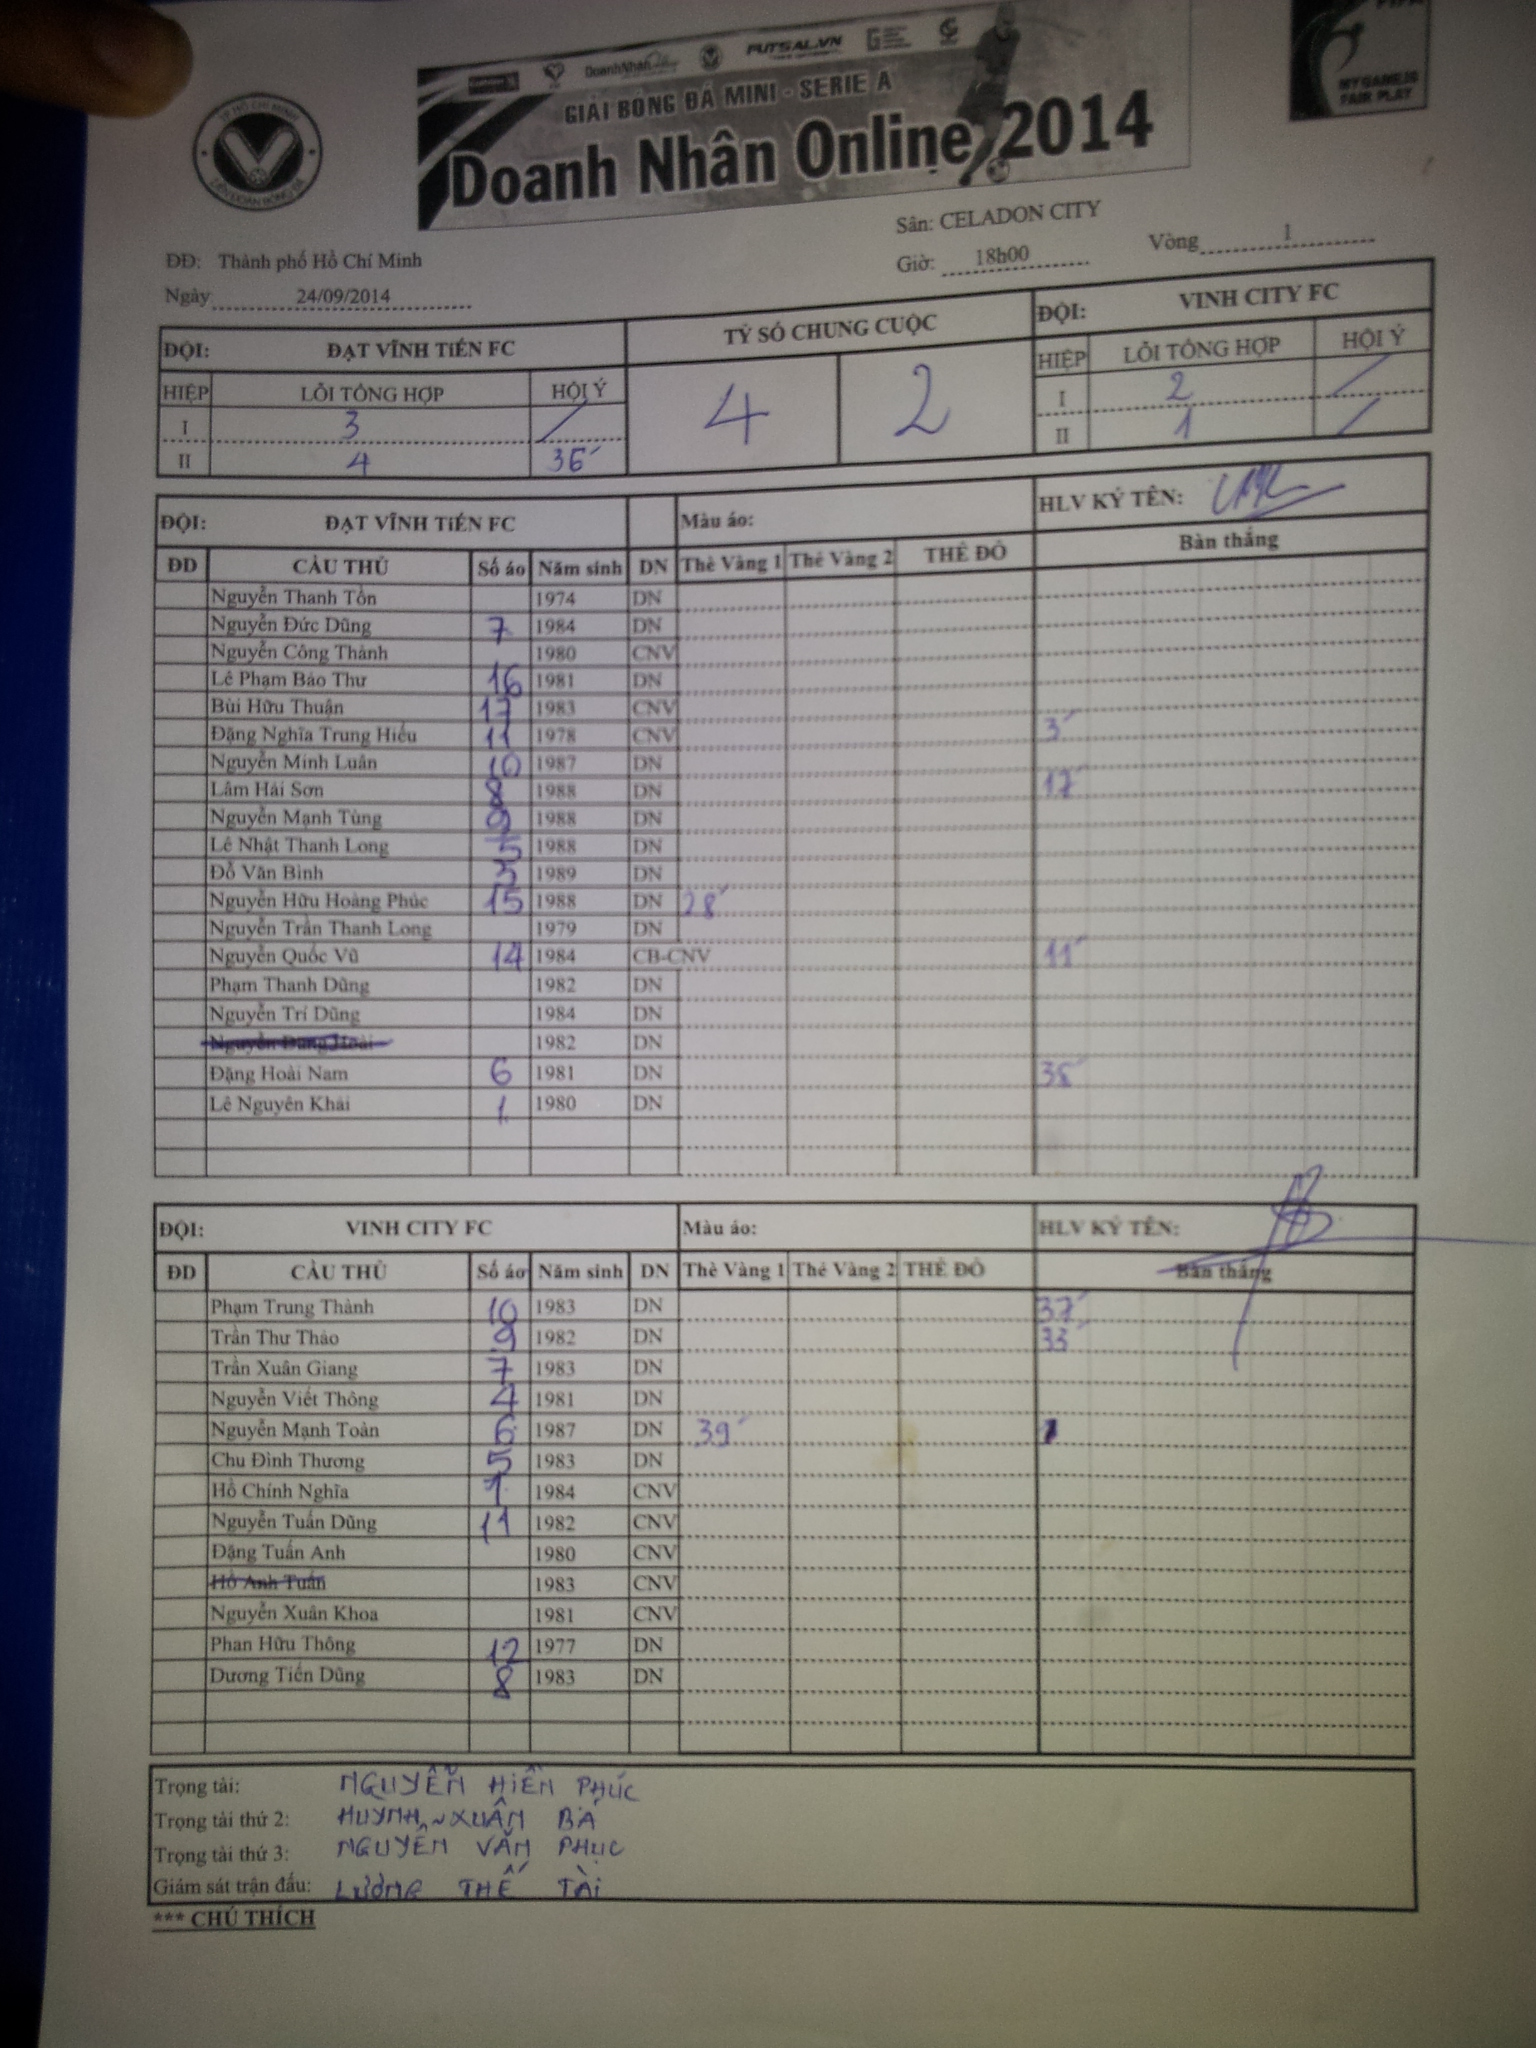 TP HỒ CHÍ MINH
LIÊN ĐOÀN BÓNG ĐÁ
DoanhNhân FUTSAL.VN
GIẢI BÓNG ĐÁ MINI - SERIE A
Doanh Nhân Online 2014
MY GAME IS
FAIR PLAY
Sân: CELADON CITY
ĐĐ: Thành phố Hồ Chí Minh
Giờ: 18h00 Vòng 1
Ngày 24/09/2014
ĐỘI: ĐẠT VĨNH TIẾN FC TỶ SỐ CHUNG CUỘC ĐỘI: VINH CITY FC
HIỆP LỖI TỔNG HỢP HỘI Ý 4 2 HIỆP LỖI TỔNG HỢP HỘI Ý
I 3 / I 2 /
II 4 36' II 1 /
ĐỘI: ĐẠT VĨNH TIẾN FC Màu áo: HLV KÝ TÊN:
ĐD CẦU THỦ Số áo Năm sinh DN Thẻ Vàng 1 Thẻ Vàng 2 THẺ ĐỎ Bàn thắng
Nguyễn Thanh Tồn 1974 DN
Nguyễn Đức Dũng 7 1984 DN
Nguyễn Công Thành 1980 CNV
Lê Phạm Bảo Thư 16 1981 DN
Bùi Hữu Thuận 17 1983 CNV
Đặng Nghĩa Trung Hiếu 11 1978 CNV 3'
Nguyễn Minh Luân 10 1987 DN
Lâm Hải Sơn 8 1988 DN 17'
Nguyễn Mạnh Tùng 9 1988 DN
Lê Nhật Thanh Long 5 1988 DN
Đỗ Văn Bình 3 1989 DN
Nguyễn Hữu Hoàng Phúc 15 1988 DN 28'
Nguyễn Trần Thanh Long 1979 DN
Nguyễn Quốc Vũ 14 1984 CB-CNV 11'
Phạm Thanh Dũng 1982 DN
Nguyễn Trí Dũng 1984 DN
Nguyễn Đăng Hoài 1982 DN
Đặng Hoài Nam 6 1981 DN 35'
Lê Nguyên Khải 1 1980 DN
ĐỘI: VINH CITY FC Màu áo: HLV KÝ TÊN:
ĐD CẦU THỦ Số áo Năm sinh DN Thẻ Vàng 1 Thẻ Vàng 2 THẺ ĐỎ Bàn thắng
Phạm Trung Thành 10 1983 DN 37'
Trần Thư Thảo 9 1982 DN 33'
Trần Xuân Giang 7 1983 DN
Nguyễn Viết Thông 4 1981 DN
Nguyễn Mạnh Toàn 6 1987 DN 39'
Chu Đình Thương 5 1983 DN
Hồ Chính Nghĩa 1 1984 CNV
Nguyễn Tuấn Dũng 11 1982 CNV
Đặng Tuấn Anh 1980 CNV
Hồ Anh Tuấn 1983 CNV
Nguyễn Xuân Khoa 1981 CNV
Phan Hữu Thông 12 1977 DN
Dương Tiến Dũng 8 1983 DN
Trọng tài: NGUYỄN HIỀN PHÚC
Trọng tài thứ 2: HUỲNH XUÂN BÁ
Trọng tài thứ 3: NGUYỄN VĂN PHỤC
Giám sát trận đấu: LƯƠNG THẾ TÀI
*** CHÚ THÍCH